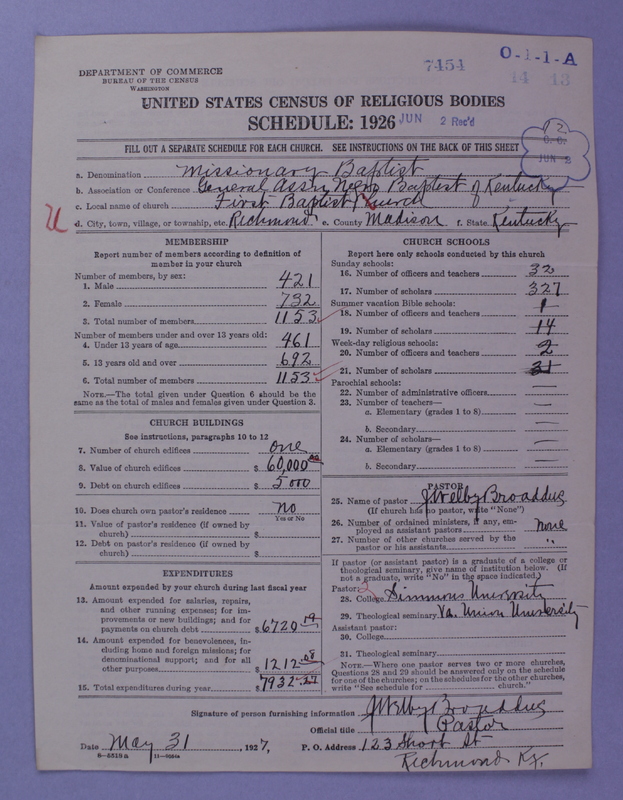 DEPARTMENT OF COMMERCE
BUREAU OF THE CENSUS
WASHINGTON
7454
O-1-1-A
14 13
UNITED STATES CENSUS OF RELIGIOUS BODIES
SCHEDULE: 1926
JUN 2 Rec'd
JUN 2
FILL OUT A SEPARATE SCHEDULE FOR EACH CHURCH. SEE INSTRUCTIONS ON THE BACK OF THIS SHEET
a. Denomination Missionary Baptist
b. Association or Conference General Assn Negro Baptist of Kentucky
c. Local name of church First Baptist Church
U
d. City, town, village, or township, etc. Richmond e. County Madison f. State Kentucky
MEMBERSHIP
Report number of members according to definition of
member in your church
Number of members, by sex:
1. Male 421
2. Female 732
3. Total number of members 1153
Number of members under and over 13 years old:
4. Under 13 years of age 461
5. 13 years old and over 692
6. Total number of members 1153
NOTE.—The total given under Question 6 should be the
same as the total of males and females given under Question 3.
CHURCH BUILDINGS
See instructions, paragraphs 10 to 12
7. Number of church edifices one
8. Value of church edifices $ 60,000 00
9. Debt on church edifices $ 5000
10. Does church own pastor's residence? no
Yes or No
11. Value of pastor's residence (if owned by
church) $
12. Debt on pastor's residence (if owned by
church) $
EXPENDITURES
Amount expended by your church during last fiscal year
13. Amount expended for salaries, repairs,
and other running expenses; for im-
provements or new buildings; and for
payments on church debt $ 6720 19
14. Amount expended for benevolences, in-
cluding home and foreign missions; for
denominational support; and for all
other purposes $ 1212 08
15. Total expenditures during year $ 7932.27
CHURCH SCHOOLS
Report here only schools conducted by this church
Sunday schools:
16. Number of officers and teachers 32
17. Number of scholars 327
Summer vacation Bible schools:
18. Number of officers and teachers 1
19. Number of scholars 14
Week-day religious schools:
20. Number of officers and teachers 2
21. Number of scholars 31
Parochial schools:
22. Number of administrative officers —
23. Number of teachers—
a. Elementary (grades 1 to 8) —
b. Secondary —
24. Number of scholars—
a. Elementary (grades 1 to 8) —
b. Secondary —
PASTOR
25. Name of pastor J Welby Broaddus
(If church has no pastor, write "None")
26. Number of ordained ministers, if any, em-
ployed as assistant pastors none
27. Number of other churches served by the
pastor or his assistants "
If pastor (or assistant pastor) is a graduate of a college or
theological seminary, give name of institution below. (If
not a graduate, write "No" in the space indicated.)
Pastor: 3
28. College Simmons University
29. Theological seminary Va. Union University
Assistant pastor:
30. College
31. Theological seminary
NOTE.—Where one pastor serves two or more churches,
Questions 28 and 29 should be answered only on the schedule
for one of the churches; on the schedules for the other churches,
write "See schedule for church."
Signature of person furnishing information J Welby Broaddus
Official title Pastor
Date May 31, 1927, P. O. Address 123 Short St
Richmond Ky.